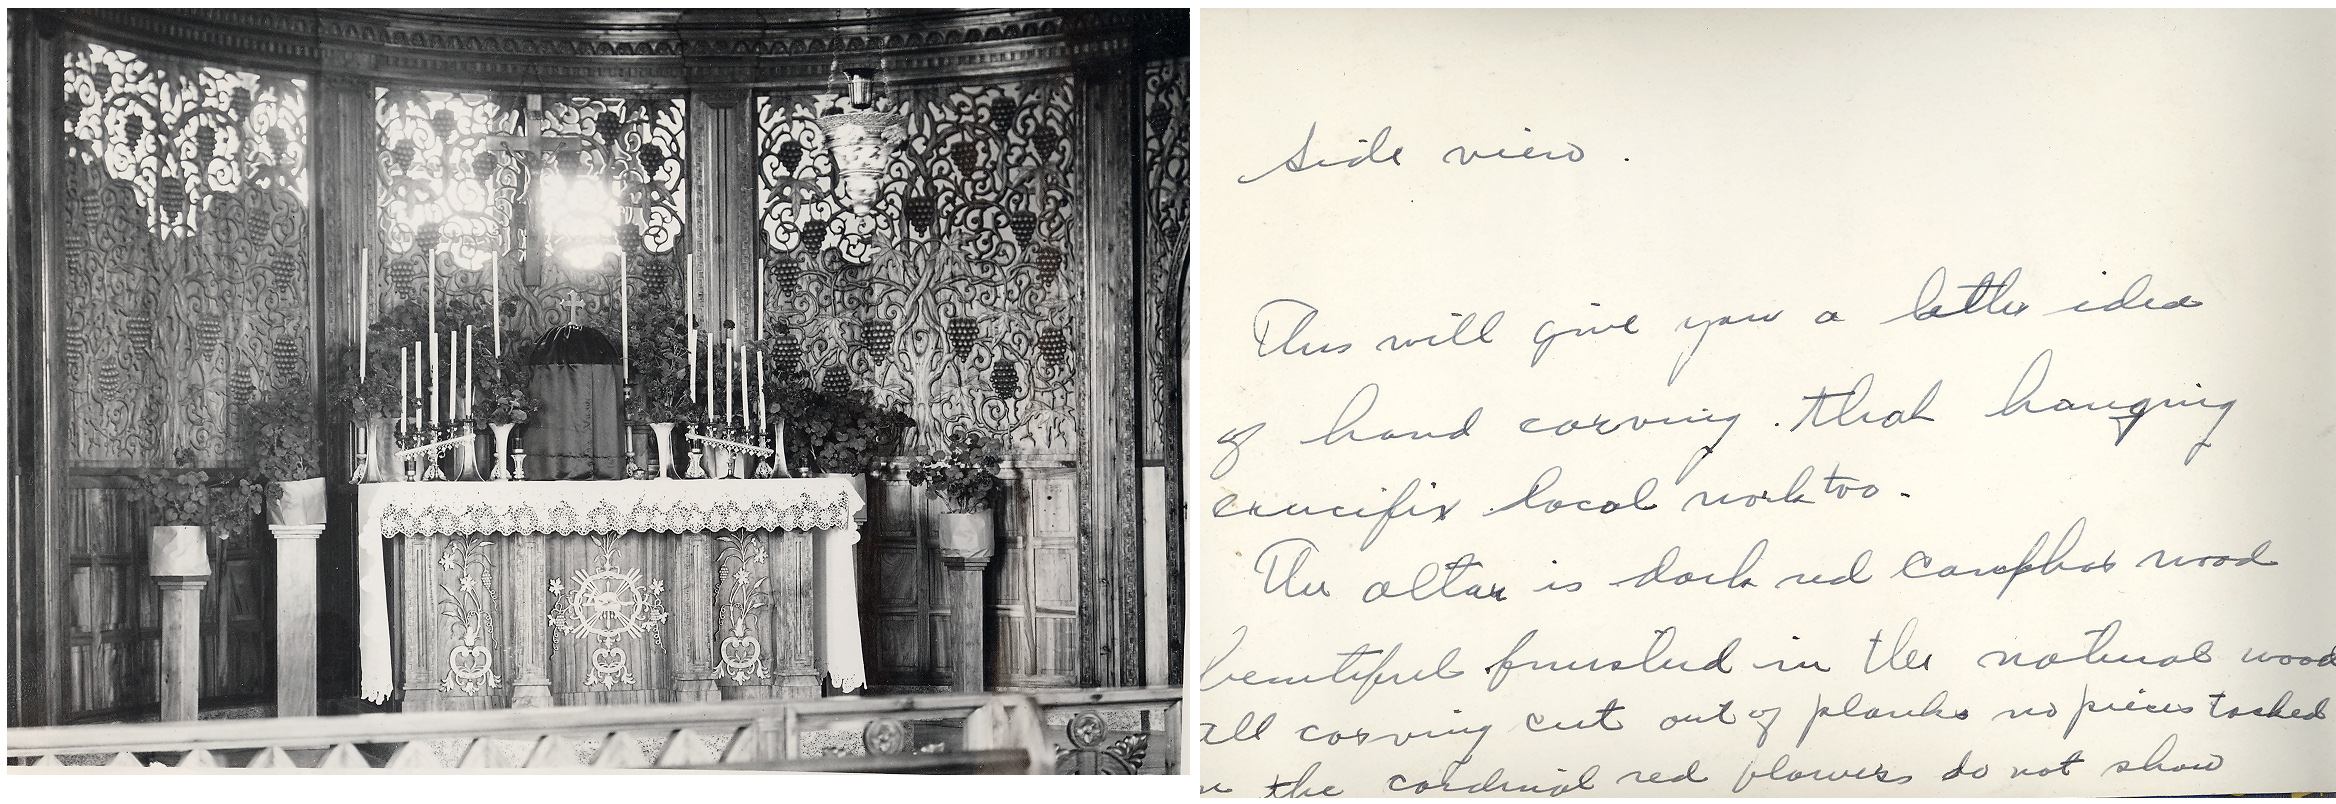 Side view.
This will give you a better idea
of hand carving. that hanging
crucifix local work too.
The altar is dark red camphor wood
beautiful finished in the natural wood
all carving cut out of planks no pieces tacked
the cardinal red flowers do not show